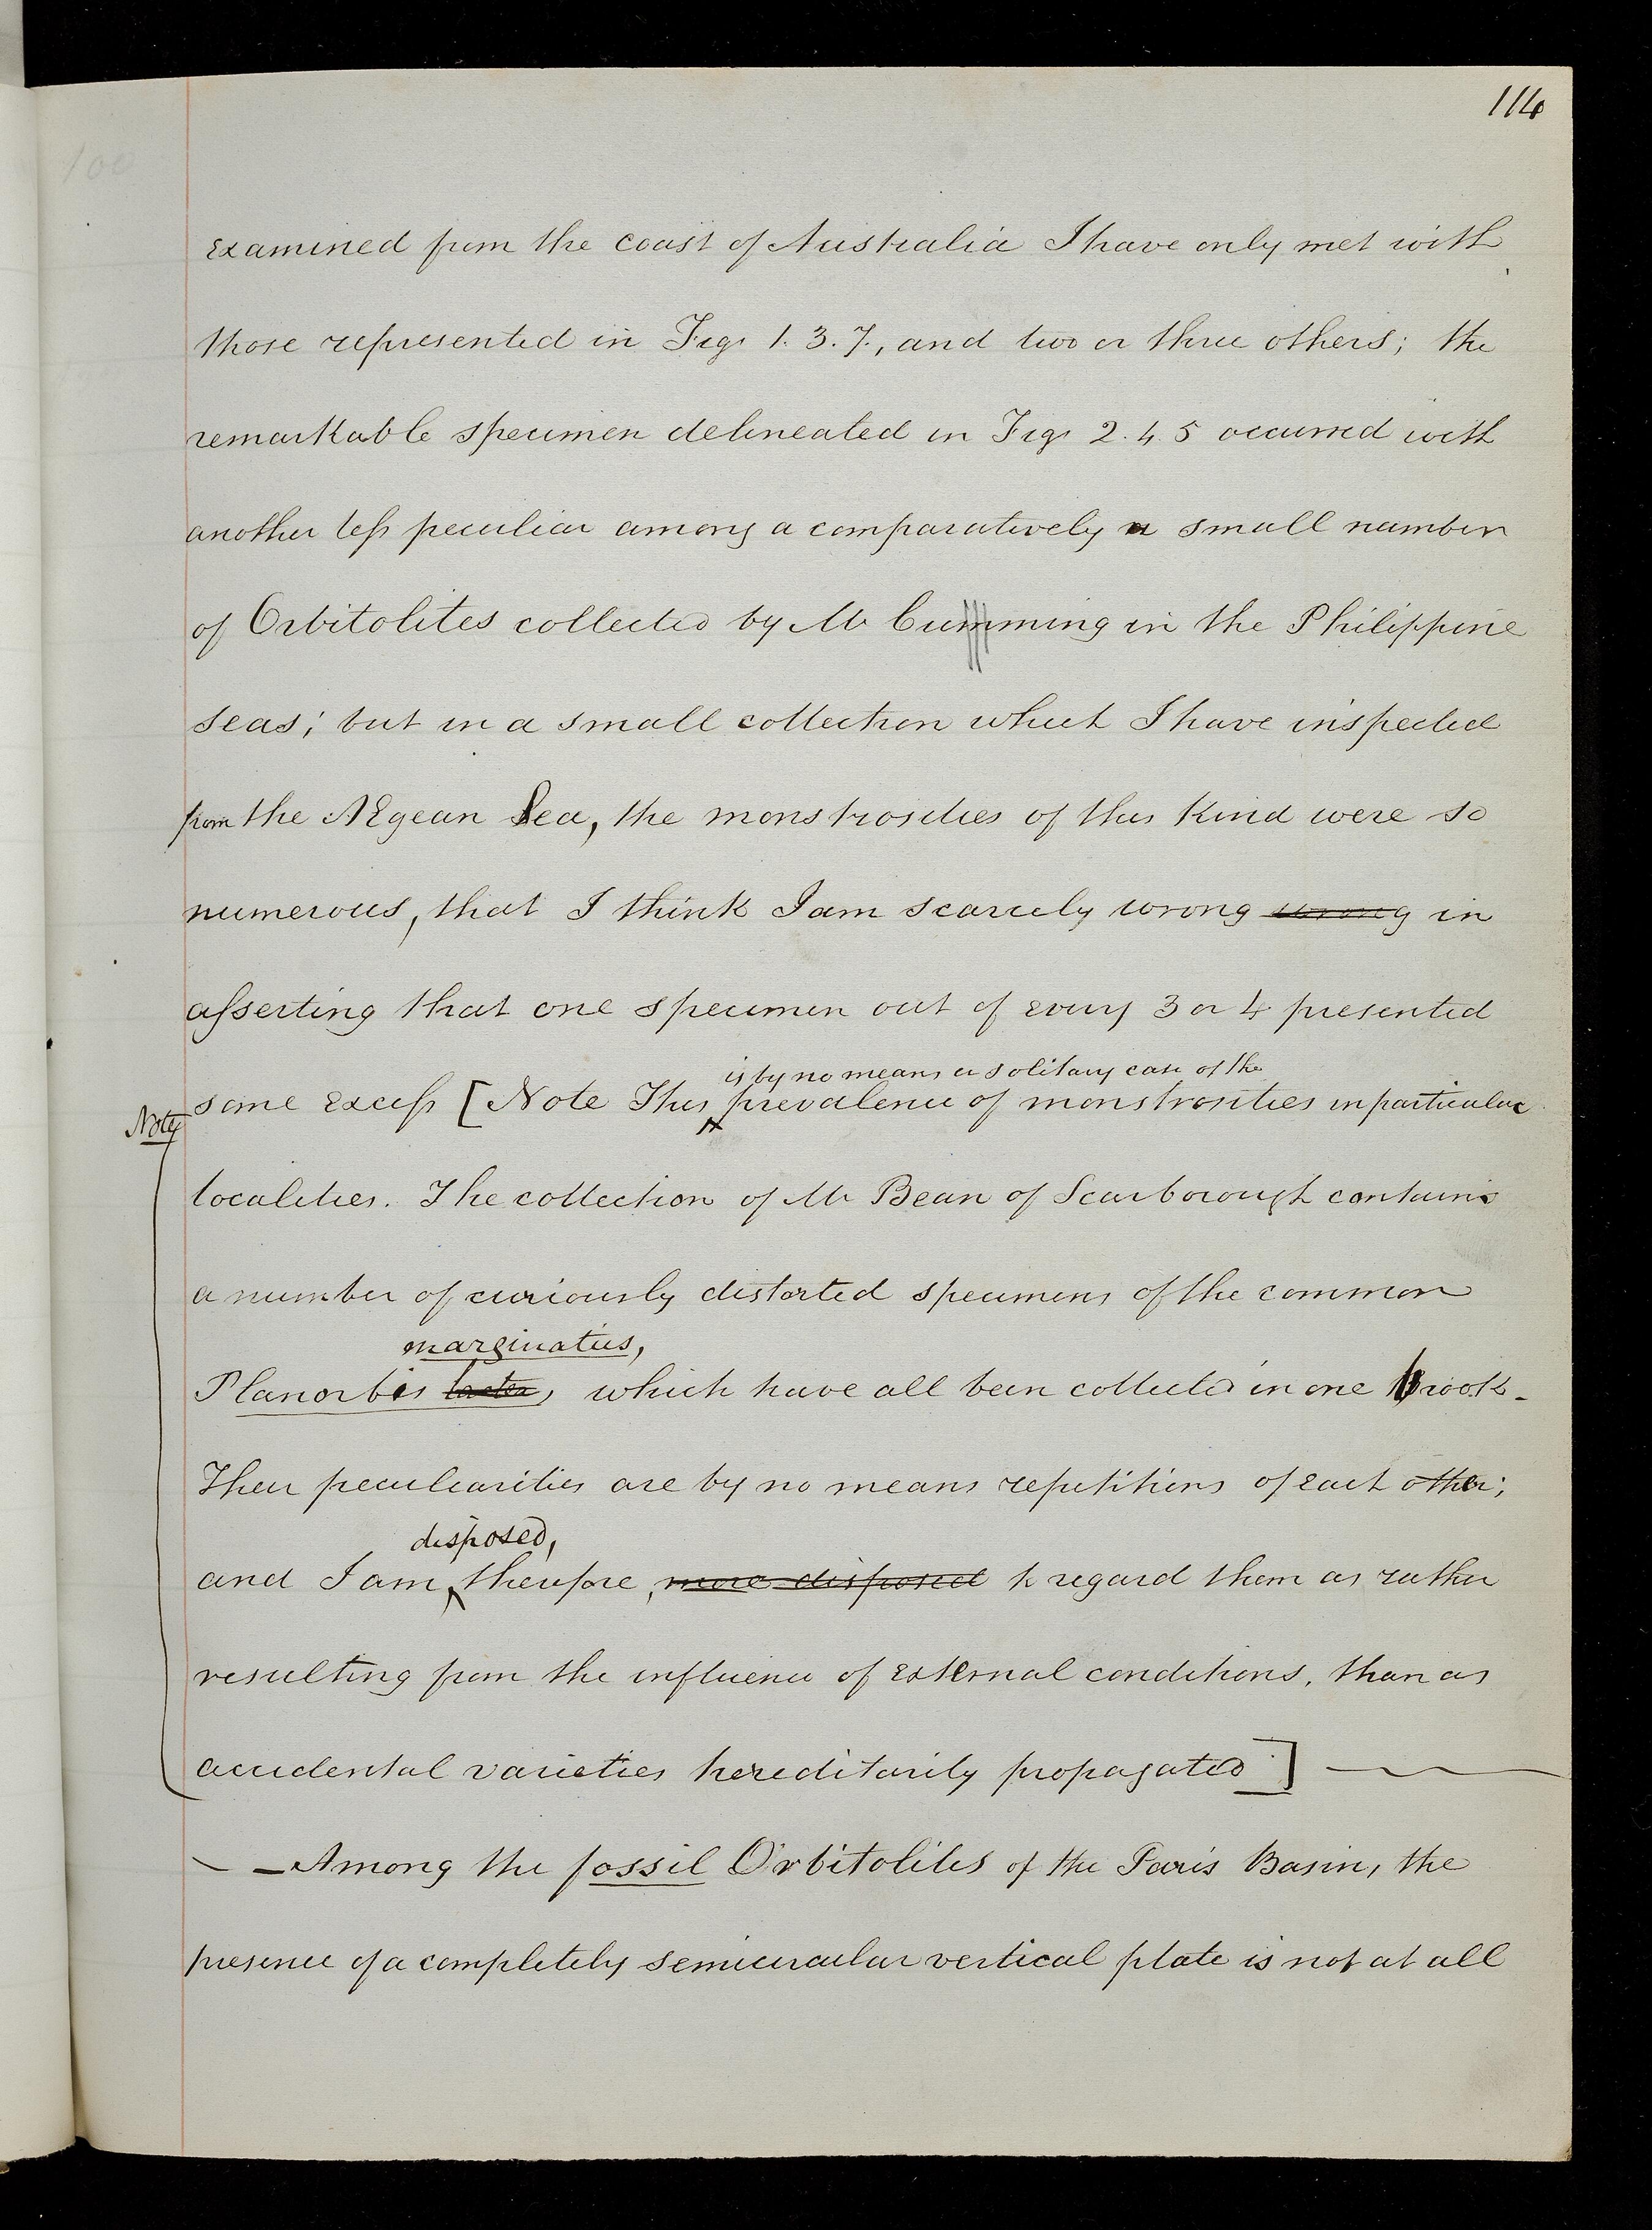 114
examined from the coast of Australia I have only met with
those represented in Figs 1. 3. 7., and two or three others; the
remarkable specimen delineated in Figs 2. 4. 5 occurred with
another less peculiar among a comparatively a small number
of Orbitolites collected by Mr Cumming in the Philippine
seas; but in a small collection which I have inspected
from the Ægean Sea, the monstrosities of this kind were so
numerous, that I think I am scarcely wrong wrong in
asserting that one specimen out of every 3 or 4 presented
is by no means a solitary case of the
some excess [Note This prevalence of monstrosities in particular
Note
localities. The collection of Mr Bean of Scarborough contains
a number of curiously distorted specimens of the common
marginatus,
Planorbis which have all been collected in one brook.
Their peculiarities are by no means repetitions of each other;
disposed,
and I am, therefore, more disposed to regard them as rather
resulting from the influence of external conditions, than as
accidental varieties hereditarily propagated]
— Among the fossil Orbitolites of the Paris Basin, the
presence of a completely semicircular vertical plate is not at all